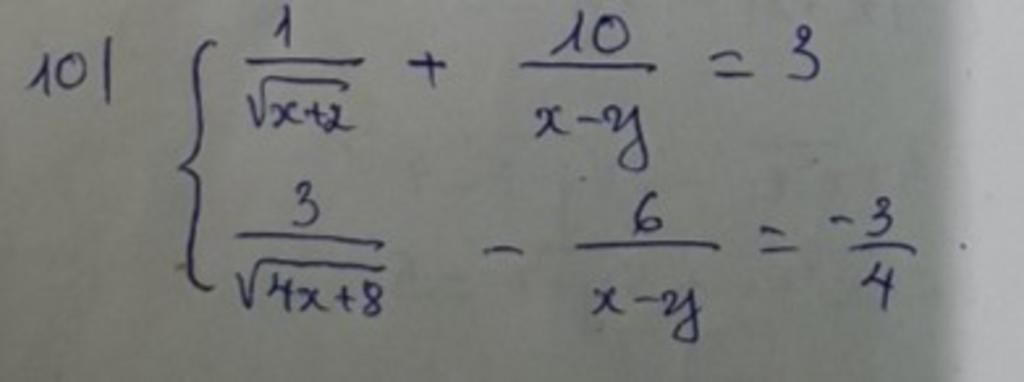 10) { 1/√(x+2) + 10/(x-y) = 3
3/√(4x+8) - 6/(x-y) = -3/4